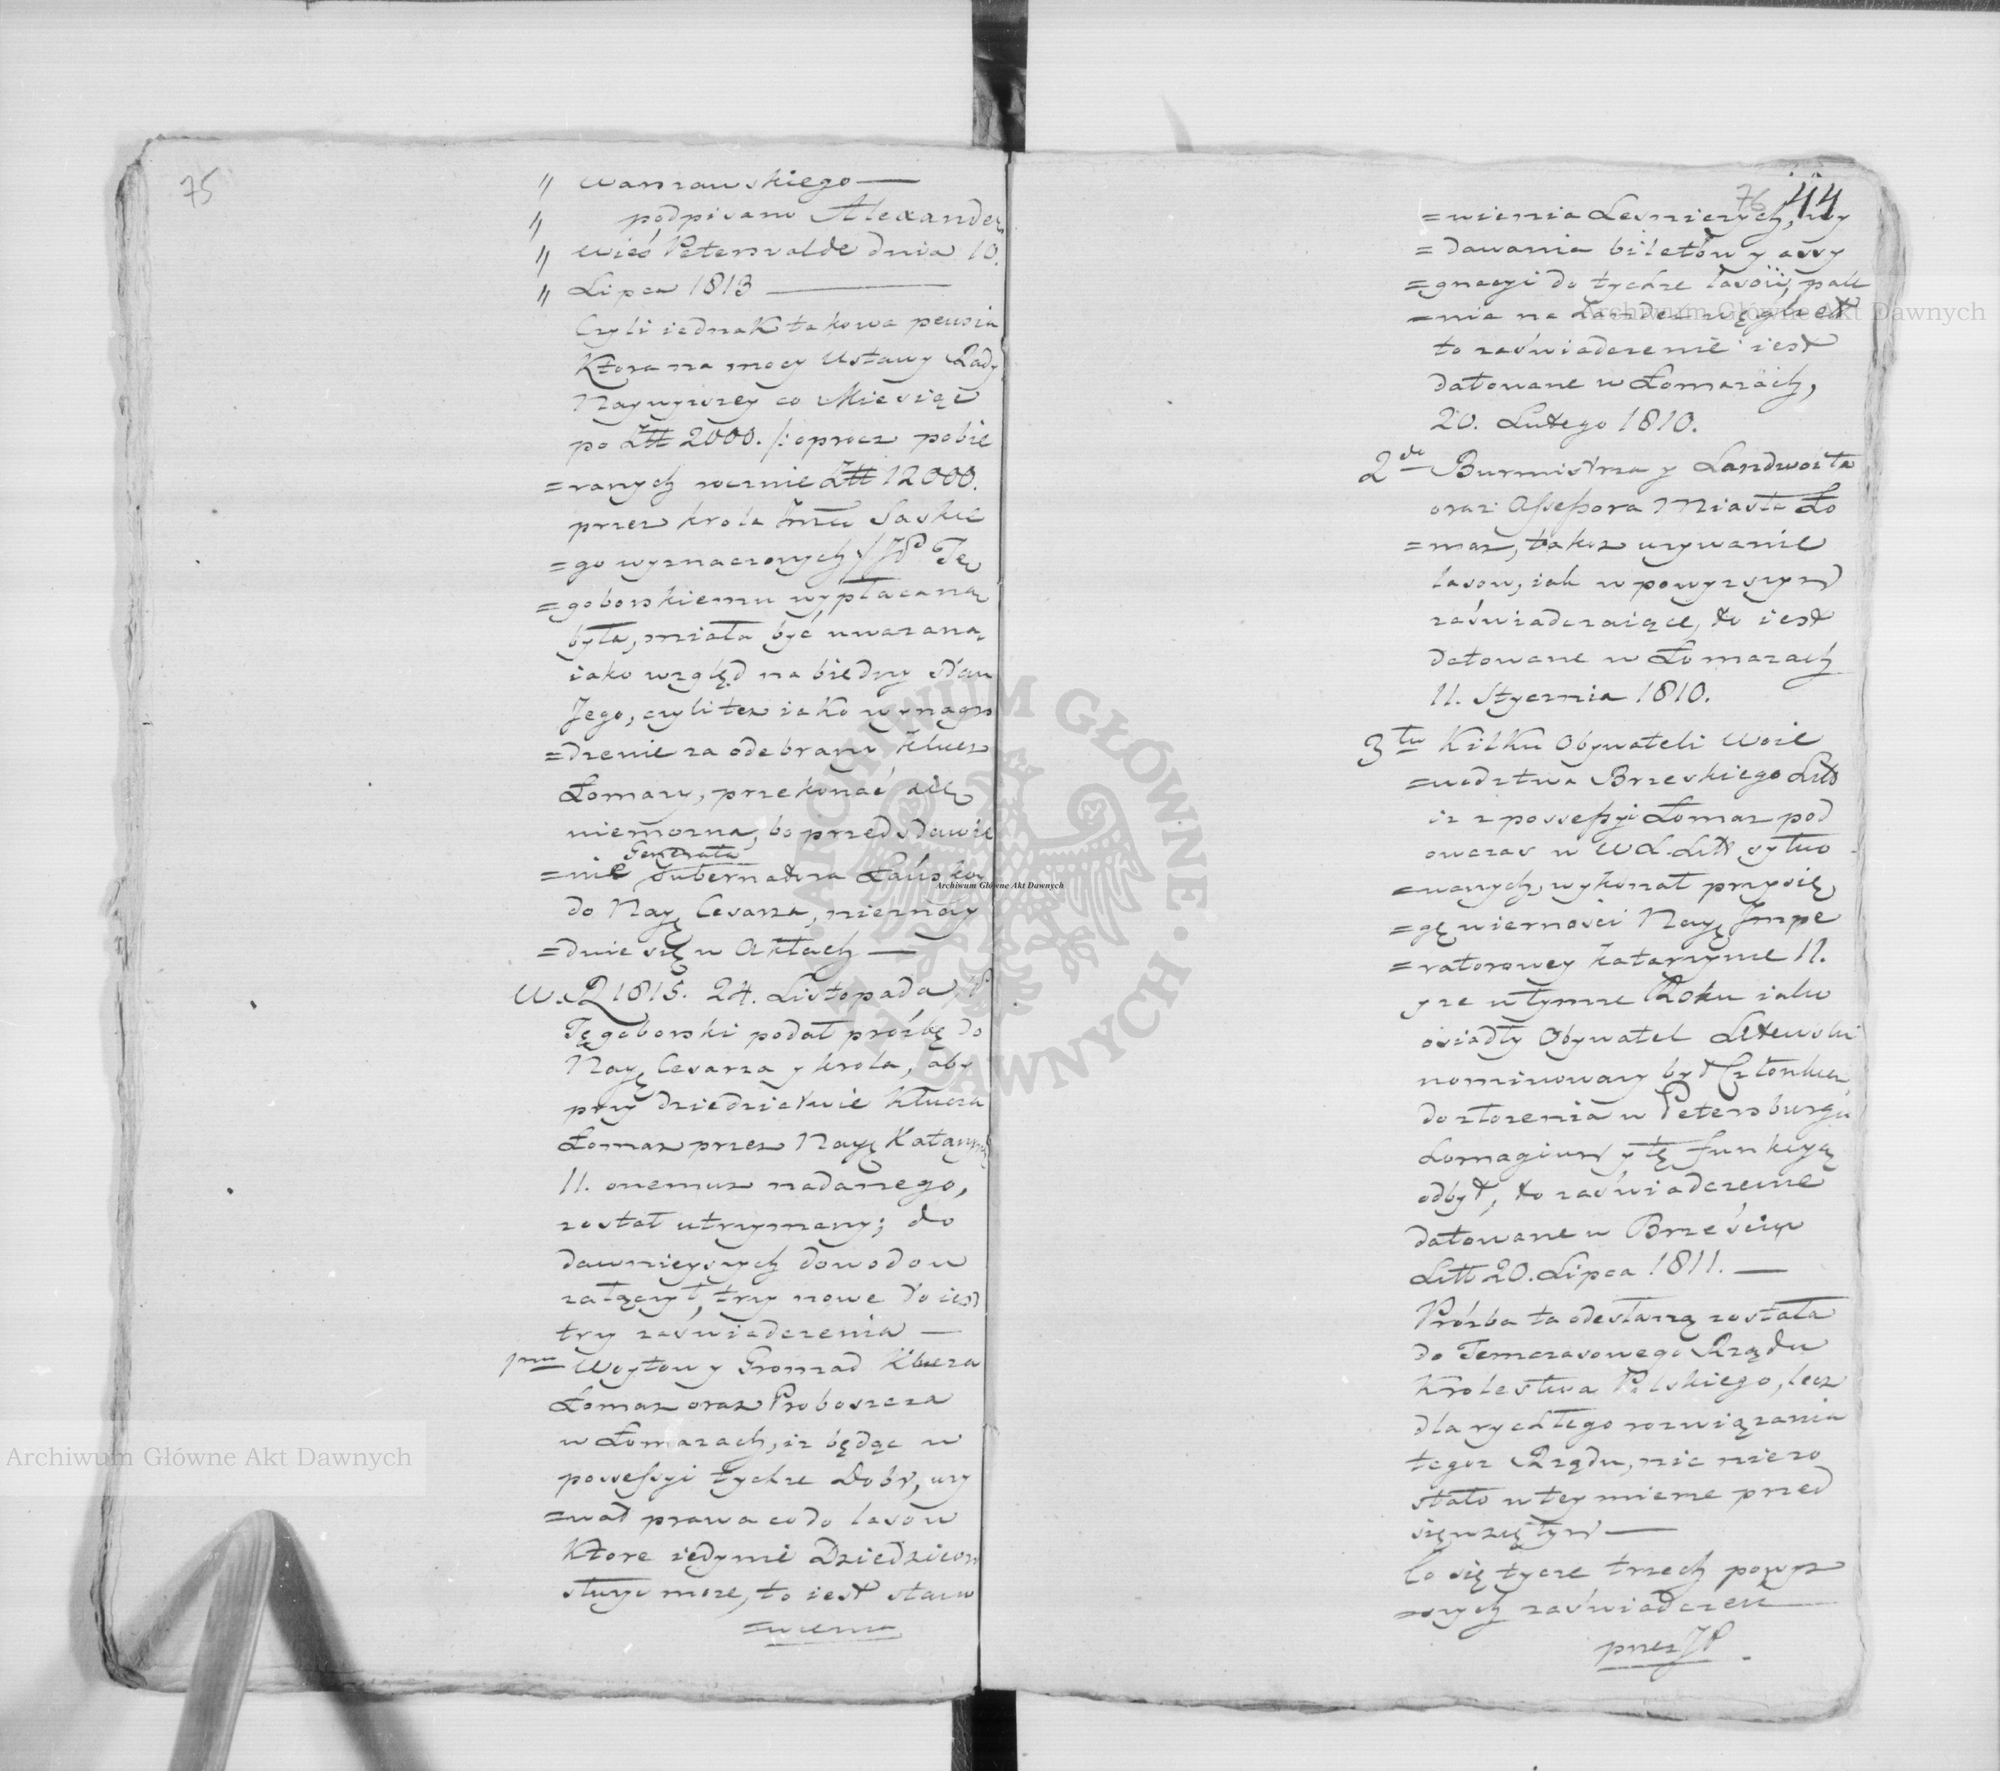 75
" Warszawskiego —
" podpisano Alexander
" Wieś Peterswalde dnia 10.
" Lipca 1813 —
Czyli iednak takowa pensia
Ktora na mocy Ustawy Rady
Naywyzszey co Miesiąc
po Z# 2000. /: oprocz pobie
=ranych rocznie Z# 12000.
przez krola Saskie
=go wyznaczonych :/ JP Tę
=goborskiemu wypłacana
była, miała być uwazana,
iako wzgląd na biedny stan
Jego, czyli tez iako wynagro
=dzenie za odebrany klucz
Łomazy, przekonać się
niemozna, bo przedstawie
=nie Generała Gubernatora Łańskoy
do Nayę Cesarza, nieznay
=duie się w Aktach —
W. R 1815. 24. Listopada, JP
Tęgoborski podał prozbę do
Nayę Cesarza y krola, aby
przy dziedzictwie Klucza
Łomaz przez Nayę Katarzynę
II. onemuz nadanego,
został utrzymany; do
dawnieyszych dowodow
załączył, trzy nowe to iest
trzy zaświadczenia —
1mo Woytow y Gromad Klucza
Łomaz oraz Proboszcza
w Łomazach, iz będąc w
possessyi tychze Dobr, uzy
=wał prawa co do lasow
Ktore iedynie Dziedzicom
słuzyc moze, to iest stano
=wienia
76 44
=wienia Lesniczych, wy
=dawania biletow y assy
=gnacyi do tychze lasow, pale
=nia na węgle etc
to zaświadczenie iest
datowane w Łomazach,
20. Lutego 1810.
2do Burmistrza y Landwoita
oraz Assessora Miasta Ło
=maz, takoz uzywanie
lasow, iak w powyzszym
zaświadczaiące, to iest
datowane w Łomazach
11. Stycznia 1810.
3tio Kilku Obywateli Woie
=wodztwa Brzeskiego Litt
iz z possessyi Łomaz pod
owczas w W.X. Litt sytuo
=wanych, wykonał przysię
=gę wierności Nayę Impe
=ratorowey Katarzynie II.
y ze w tymze Roku iako
osiadły Obywatel Litewski
nominowany był Członkiem
do złozenia w Petersburgu
Homagium y tę funkcyą
odbył, to zaświadczenie
datowane w Brześciu
Litt 20. Lipca 1811. —
Prozba ta odesłaną została
do Temczasowego Rządu
Krolestwa Polskiego, lecz
dla rychłego rozwiązania
tegoz Rządu, nic niezo
stało w tey mierze przed
sięwziętym —
Co się tycze trzech powyz
=szych zaświadczen
przez JP
Archiwum Główne Akt Dawnych
Archiwum Główne Akt Dawnych
Archiwum Główne Akt Dawnych
ARCHIWUM GŁÓWNE AKT DAWNYCH